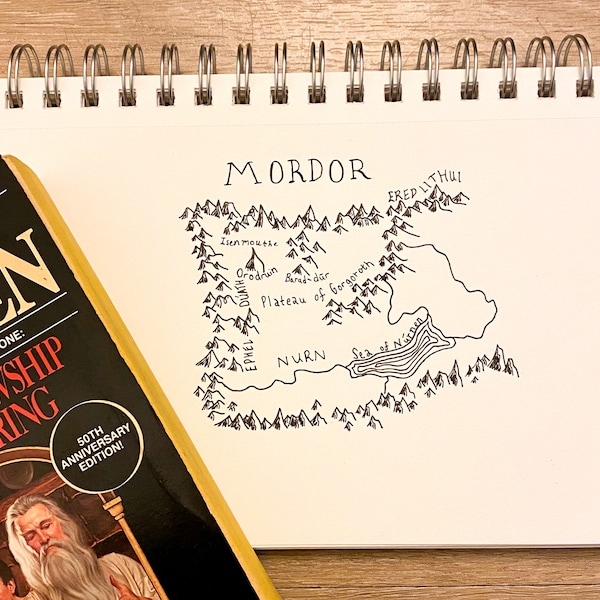 MORDOR
ERED LITHUI
Isenmouthe
Orodruin
Barad-dûr
Plateau of Gorgoroth
EPHEL DÚATH
NURN
Sea of Núrnen
EN
ONE:
WSHIP
RING
50TH
ANNIVERSARY
EDITION!